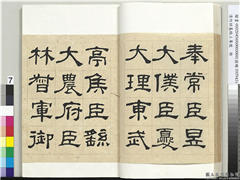 奉常臣昱
大僕臣夔
大理東武
亭侯臣繇
大農府臣
林督軍御
7